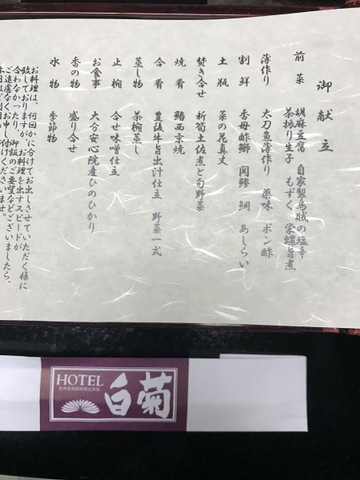 御献立
前菜 胡麻豆腐 自家製烏賊の塩辛
茶振り生子 もずく 栄螺旨煮
薄作り 太刀魚薄作り 薬味 ポン酢
割鮮 香母酢鰤 関鯵 鯛 あしらい
土瓶 菜の花真丈
焚き合せ 新筍土佐煮と旬野菜
焼肴 鰆西京焼
合肴 豊後牛旨出汁仕立 野菜一式
蒸し物 茶椀蒸し
止椀 合せ味噌仕立
お食事 大分安心院産ひのひかり
香の物 盛り合せ
水物 季節物
お料理は、何回かに分けてお出しさせていただく様に
致しておりますが、お料理を出すスピードが
合わなかったり、御飯のご要望などございましたら、
ご遠慮なくお申し付けくださいませ。
HOTEL
白菊